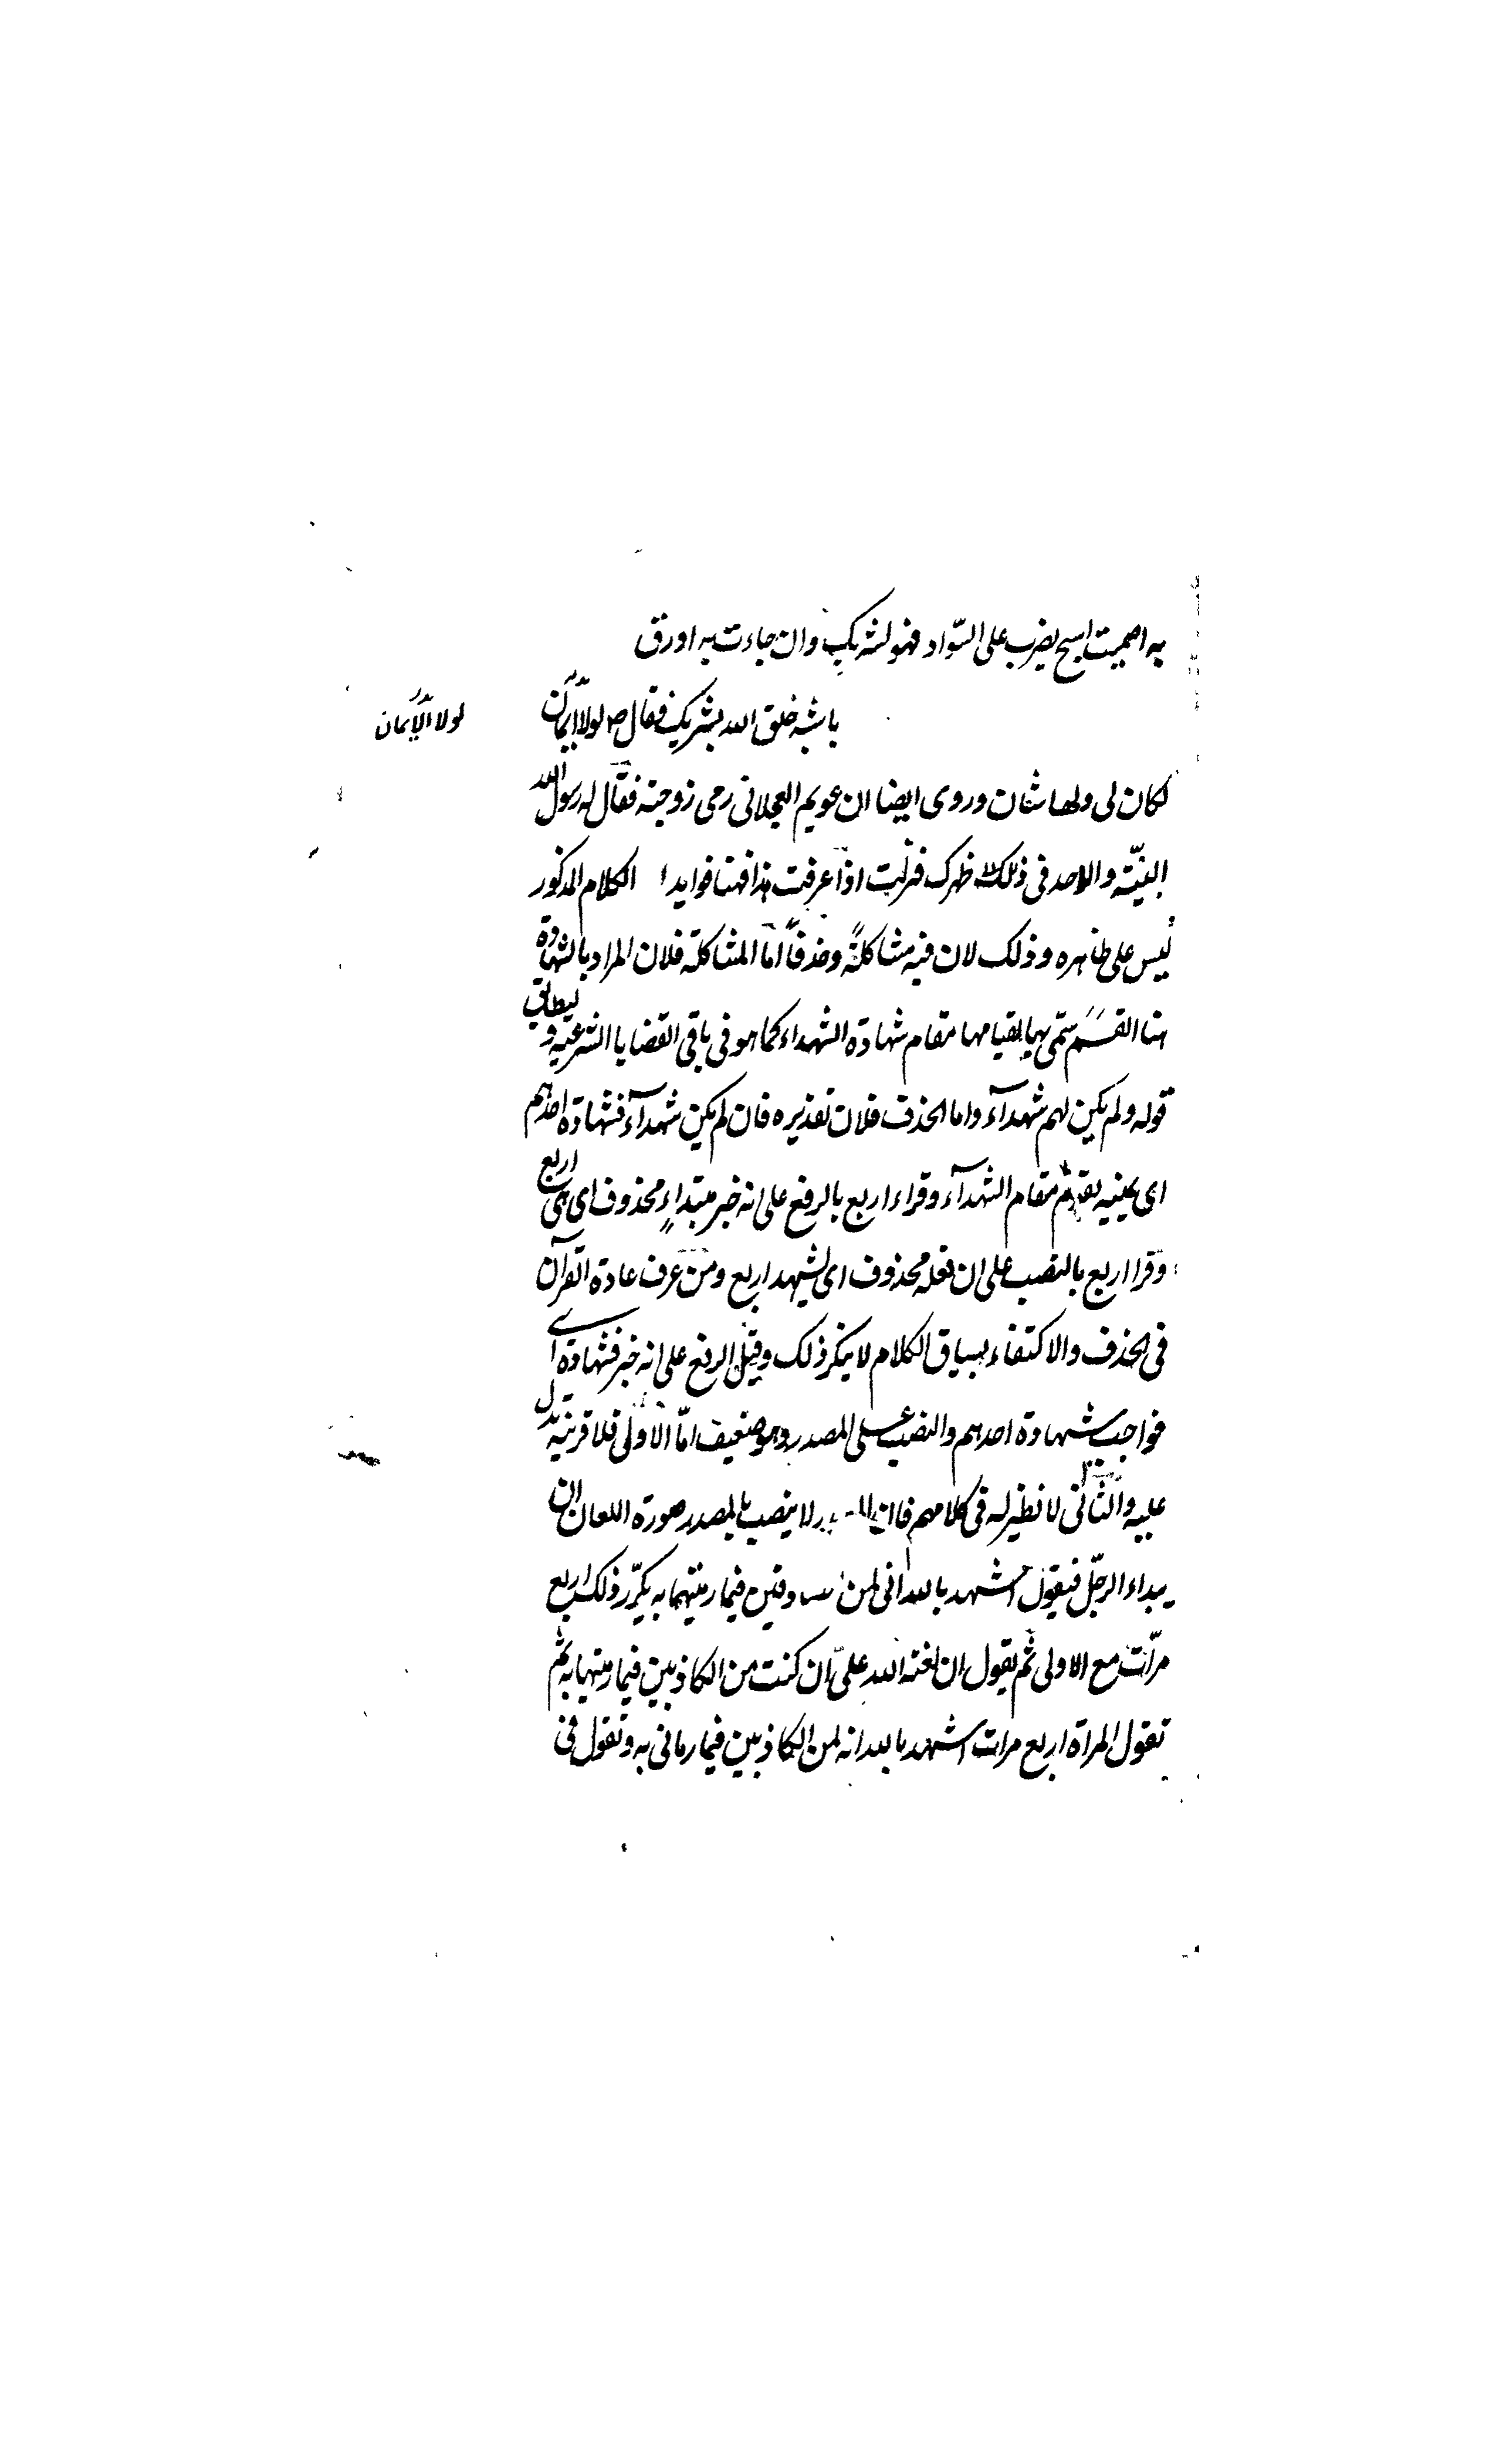 به اصهيب اسبح يضرب على السّواد فهو لشريك وان جاءت به اورق
باشبه خلق الله بشريك فقال ص لولا الايمان
لولا الايمان
لكان لى ولها شان وروى ايضا ان عويم العجلانى رمى زوجته فقال له رسول الله
البيّنة والا حد فى ظهرك فنزلت اذا عرفت هذا فهنا فوايد ا الكلام المذكور
ليس على ظاهره وذلك لان فيه مشاكلةً وحذفاً اما المشاكلة فلان المراد بالشهادة
هنا القسَم سمّى بها لقيامها مقام شهادة الشهداء كما هو فى باقى القضايا الشرعيّة وليطابق
قوله ولم يكن لهم شهدآء واما الحذف فلان تقديره فان لم يكن شهدآء فشهادة احدهم
اى يمينه يقوم مقام الشهدآء وقراء اربع بالرفع على انه خبر مبتداءٍ محذوف اى هى اربع
وقرا اربع بالنصب على ان فعله محذوف اى ليشهد اربع ومن عرف عادة القرآن
فى الحذف والاكتفاء بسياق الكلام لا ينكر ذلك وقيل الرفع على انه خبر فشهادة اى
فواجب شهادة احدهم والنصب على المصدر وهو ضعيف امّا الاولى فلا قرينة تدل
عليه والثانى لا نظير له فى كلامهم فان المصدر لا ينصب بالمصدر صورة اللعان ان
يبداء الرجل فيقول اشهد بالله انى لمن الصادقين فيما رميتها به يكرّر ذلك اربع
مرّات مع الاولى ثم يقول ان لعنة الله علىّ ان كنت من الكاذبين فيما رميتها به ثم
تقول المراة اربع مرات اشهد بالله انه لمن الكاذبين فيما رمانى به وتقول فى